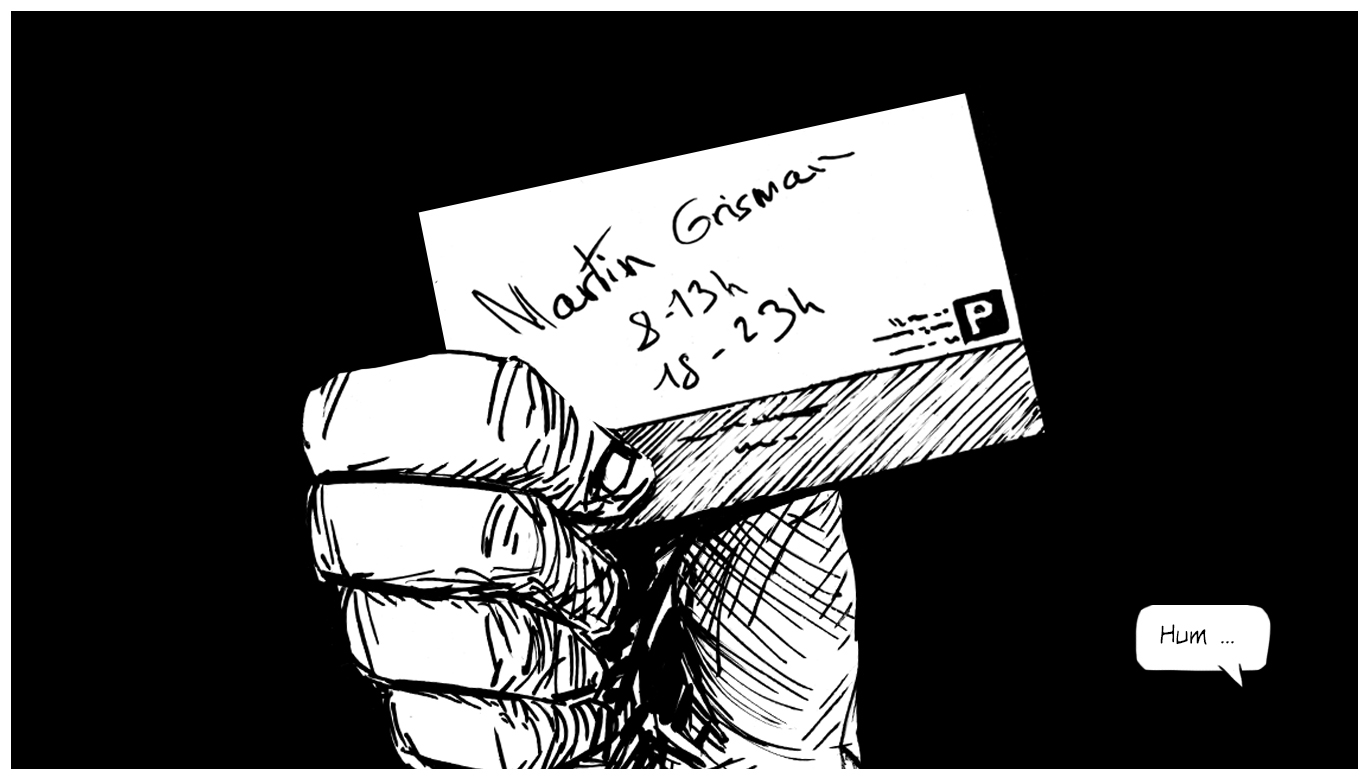 Martin Grisman
8-13h
18-23h
P
Hum ...